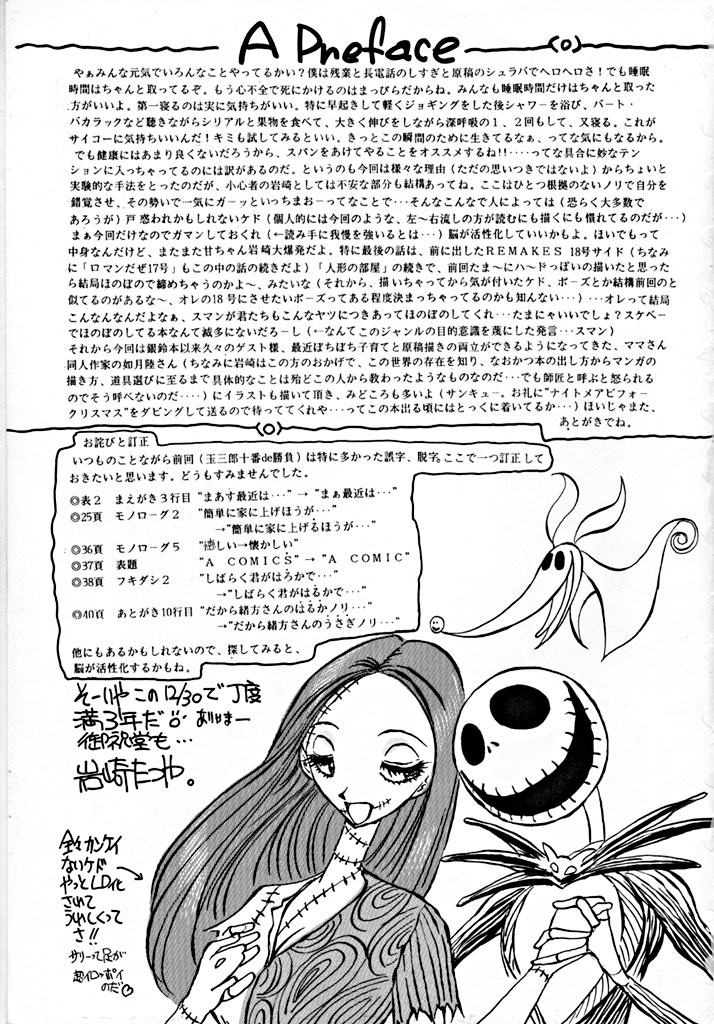 A Preface
やぁみんな元気でいろんなことやってるかい？僕は残業と長電話のしすぎと原稿のシュラバでヘロヘロさ！でも睡眠
時間はちゃんと取ってるぞ。もう心不全で死にかけるのはまっぴらだからね。みんなも睡眠時間だけはちゃんと取った
方がいいよ。第一寝るのは実に気持ちがいい。特に早起きして軽くジョギングをした後シャワーを浴び、バート・
バカラックなど聴きながらシリアルと果物を食べて、大きく伸びをしながら深呼吸の１、２回もして、又寝る。これが
サイコーに気持ちいいんだ！キミも試してみるといい。きっとこの瞬間のために生きてるなぁ、ってな気にもなるから。
でも健康にはあまり良くないだろうから、スパンをあけてやることをオススメするね!!‥‥ってな具合に妙なテン
ションに入っちゃってるのには訳があるのだ。というのも今回は様々な理由（ただの思いつきではないよ）からちょいと
実験的な手法をとったのだが、小心者の岩崎としては不安な部分も結構あってね。ここはひとつ根拠のないノリで自分を
錯覚させ、その勢いで一気にガーッといっちまおーってなことで‥‥そんなこんなで人によっては（恐らく大多数で
あろうが）戸惑われるかもしれないケド（個人的には今回のような、左〜右流しの方が読むにも描くにも慣れてるのだが‥‥）
まぁ今回だけなのでガマンしておくれ（←読み手に我慢を強いるとは‥‥）脳が活性化していいかもよ。ほいでもって
中身なんだけど、またまた甘ちゃん岩崎大爆発だよ。特に最後の話は、前に出したＲＥＭＡＫＥＳ 18号サイド（ちなみ
に「ロマンだぜ17号」もこの中の話の続きだよ）「人形の部屋」の続きで、前回たま〜にハ〜ドっぽいの描いたと思った
ら結局ほのぼので締めちゃうのかよ〜、みたいな（それから、描いちゃってから気が付いたケド、ポーズとか結構前回のと
似てるのがあるな〜、オレの18号にさせたいポーズってある程度決まっちゃってるのかも知んない‥‥）‥‥オレって結局
こんなんなんだよなぁ、スマンが君たちもこんなヤツにつきあってほのぼのしてくれ‥‥たまにゃいいでしょ？スケベー
でほのぼのしてる本なんて滅多にないだろーし（←なんてこのジャンルの目的意識を蔑にした発言‥‥スマン）
それから今回は銀鈴本以来久々のゲスト様、最近ぼちぼち子育てと原稿描きの両立ができるようになってきた、ママさん
同人作家の如月陸さん（ちなみに岩崎はこの方のおかげで、この世界の存在を知り、なおかつ本の出し方からマンガの
描き方、道具選びに至るまで具体的なことは殆どこの人から教わったようなものなのだ‥‥でも師匠と呼ぶと怒られる
のでそう呼べないのだ‥‥）にイラストも描いて頂き、みどころも多いよ（サンキュー。お礼に"ナイトメアビフォー
クリスマス"をダビングして送るので待っててくれや‥‥ってこの本出る頃にはとっくに着いてるか‥‥）ほいじゃまた、
あとがきでね。
お詫びと訂正
いつものことながら前回（玉三郎十番de勝負）は特に多かった誤字、脱字、ここで一つ訂正して
おきたいと思います。どうもすみませんでした。
◎表２　まえがき３行目 "まあす最近は‥‥" → "まぁ最近は‥‥"
◎25頁　モノローグ２　"簡単に家に上げほうが‥‥"
→"簡単に家に上げるほうが‥‥"
◎36頁　モノローグ５　"しい→懐かしい"
◎37頁　表題　"Ａ ＣＯＭＩＣＳ" → "Ａ ＣＯＭＩＣ"
◎38頁　フキダシ２　"しばらく君がはろかで‥‥"
→"しばらく君がはるかで‥‥"
◎40頁　あとがき10行目 "だから緒方さんのはるかノリ‥‥"
→"だから緒方さんのうさぎノリ‥‥"
他にもあるかもしれないので、探してみると、
脳が活性化するかもね。
そーいやこの12/30で丁度
満3年だ
御祝堂も…
岩崎たつや。
全々カンケイ
ないケド
やっとLD化
されて
うれしくって
さ!!
サリーって足が
超イロッポイ
のだ♡